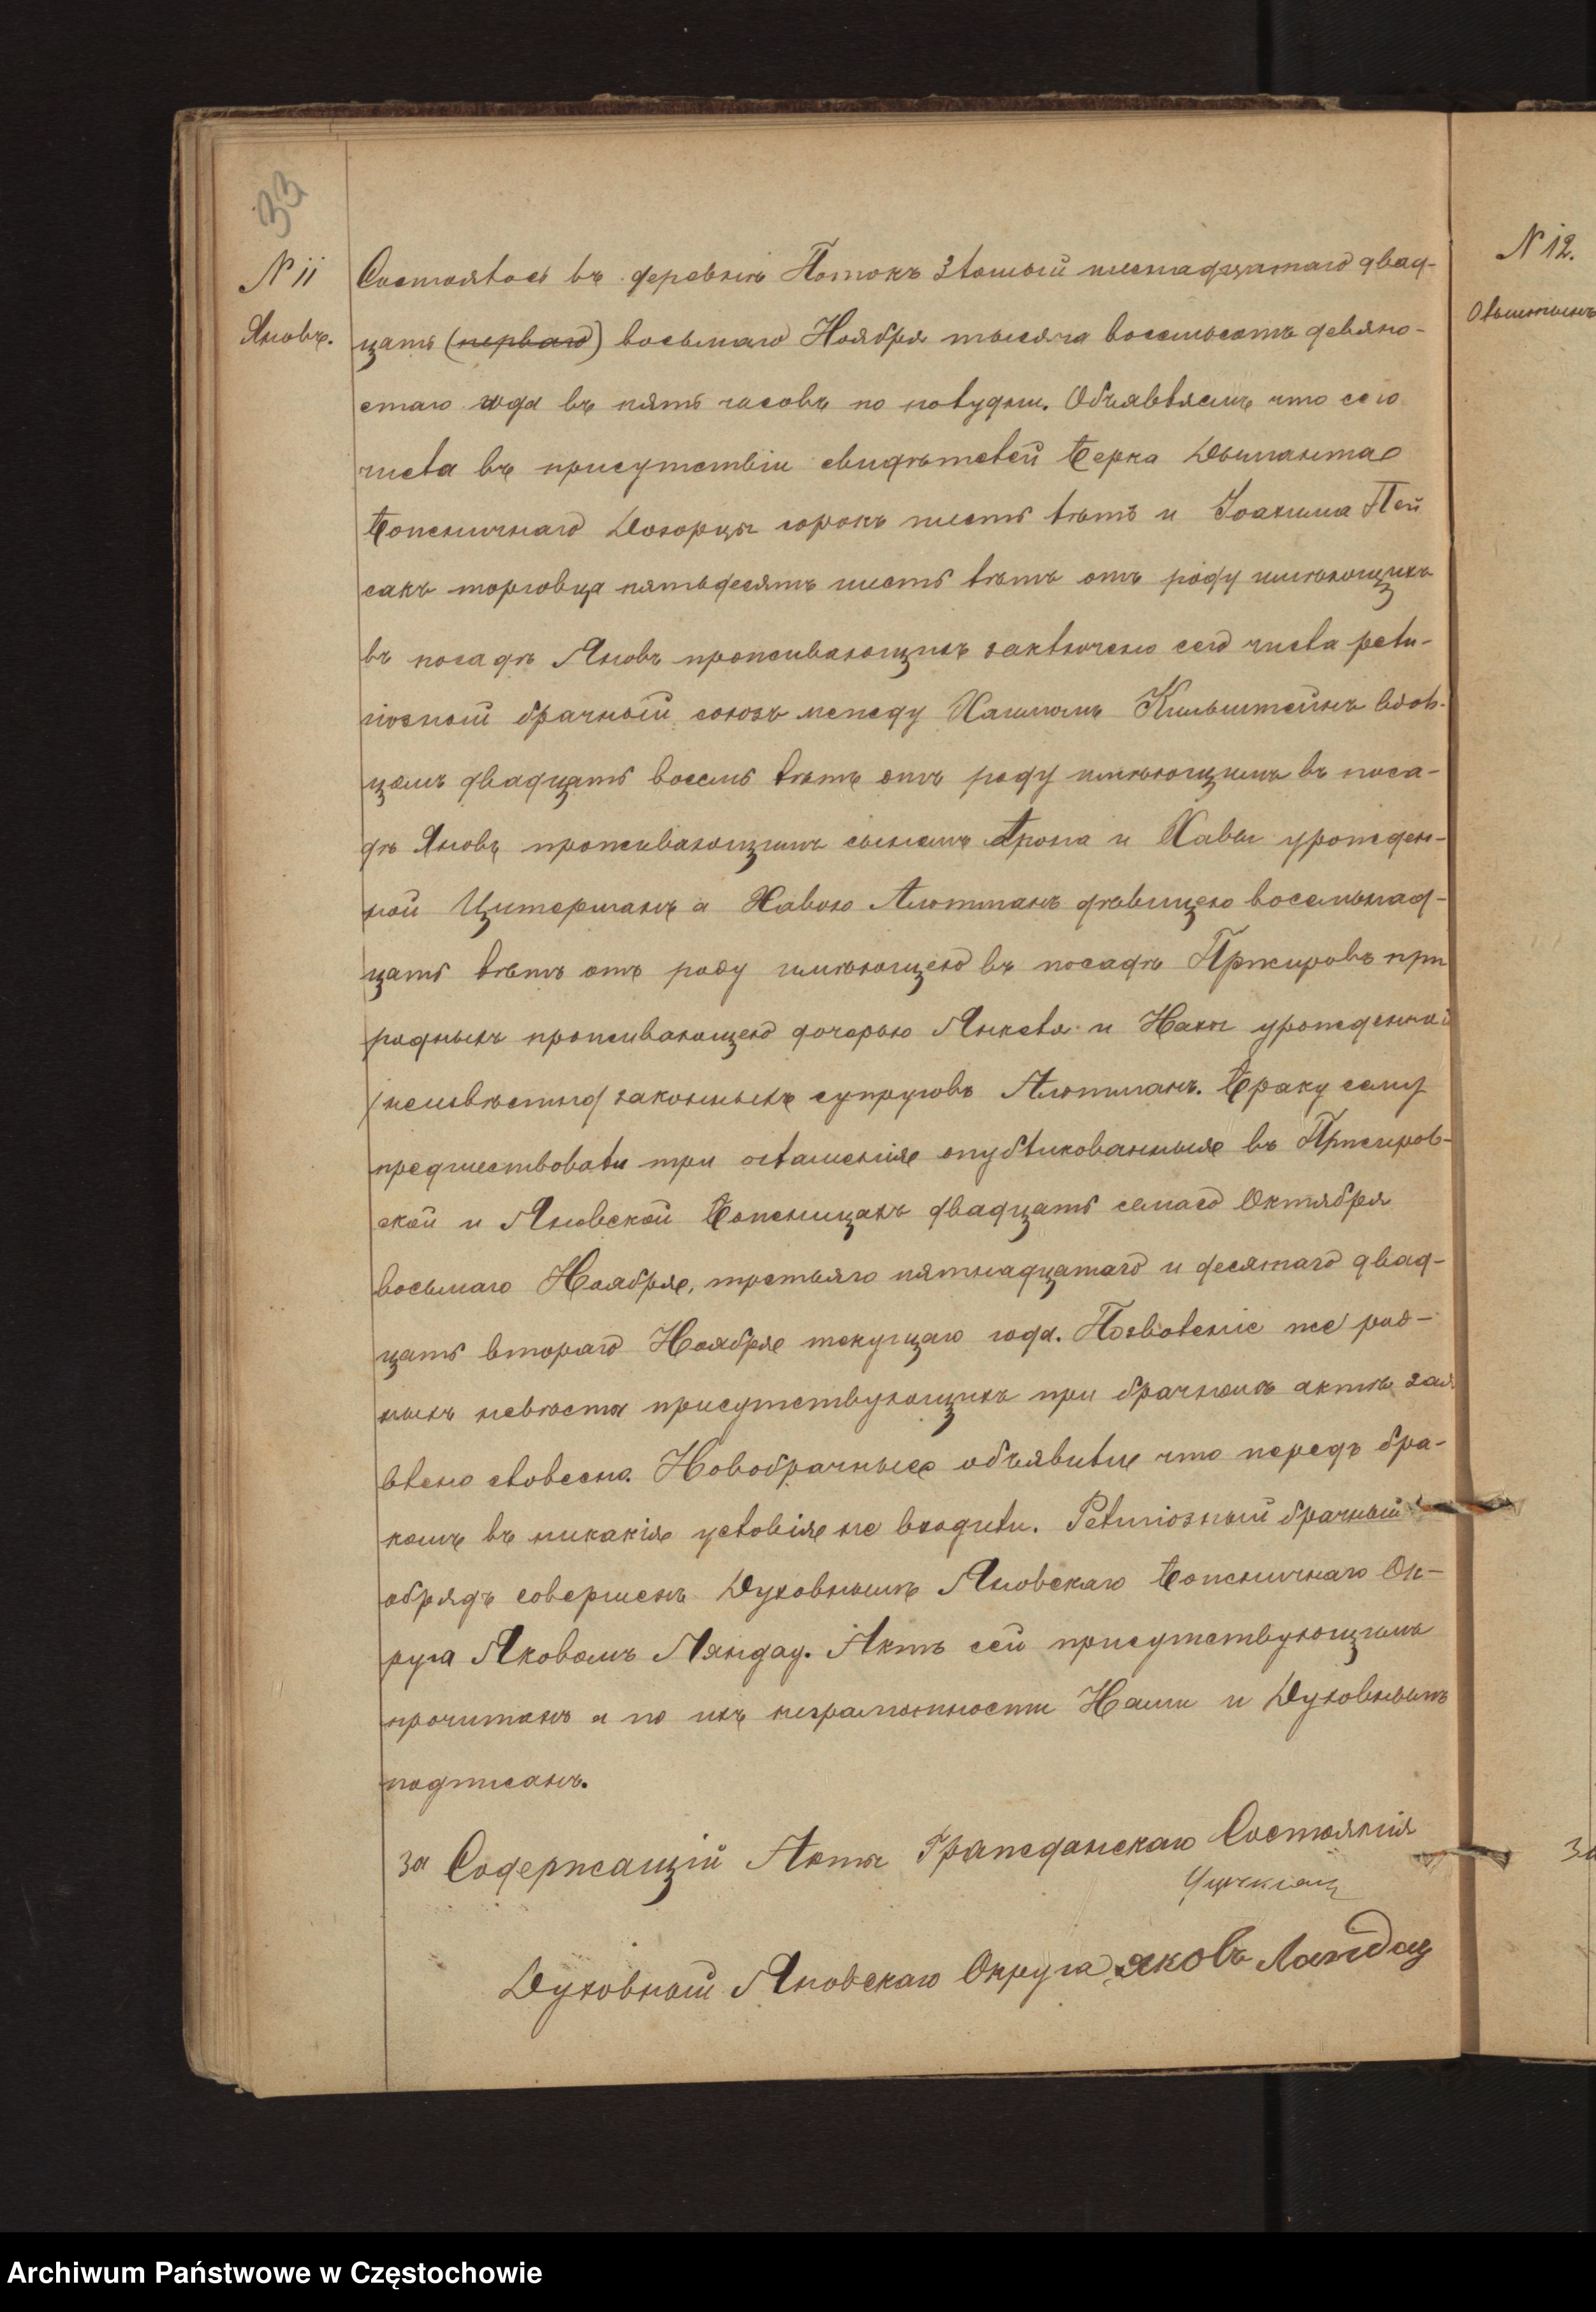 33
N 11
Яновъ.
Состоялось въ деревнѣ Потокъ Злотый шестнадцатаго двад-
цать (перваго) восьмаго Ноября тысяча восемьсотъ девяно-
стаго года въ пять часовъ по полудни. Объявляемъ что сего
числа въ присутствіи свидѣтелей Берка Дыманта
Божничнаго Дозорцы сорокъ шесть лѣтъ и Іоахима Пей
сакъ торговца пятьдесятъ шесть лѣтъ отъ роду имѣющихъ
въ посадѣ Яновъ проживающихъ заключено сего числа рели-
гіозный брачный союзъ между Хаимомъ Кильштейнъ вдов-
цомъ двадцать восемь лѣтъ отъ роду имѣющимъ въ поса-
дѣ Яновъ проживающимъ сыномъ Арона и Хавы урожден-
ной Цитерманъ а Хавою Альтманъ дѣвицею восемьнад-
цать лѣтъ отъ роду имѣющею въ посадѣ Пржировъ при
родныхъ проживающею дочерью Янкеля и Нахи урожденной
/неизвѣстно/ законныхъ супруговъ Альтманъ. Браку сему
предшествовали три оглашенія опубликованныя въ Пржиров-
ской и Яновской Божницахъ двадцать седмаго Октября
восьмаго Ноября, третьяго пятнадцатаго и десятаго двад-
цать втораго Ноября текущаго года. Позволеніе же род-
ныхъ невѣсты присутствующихъ при брачномъ актѣ зая
влено словесно. Новобрачные объявили что передъ бра-
комъ въ никакія условія не входили. Религіозный брачный
обрядъ совершенъ Духовнымъ Яновскаго Божничнаго Ок-
руга Яковомъ Ляндау. Актъ сей присутствующимъ
прочитанъ а по ихъ неграмотности Нами и Духовнымъ
подписанъ.
За Содержащій Акты Гражданскаго Состоянія
Духовный Яновскаго Округа Яковъ Ландау
N 12.
За
Archiwum Państwowe w Częstochowie